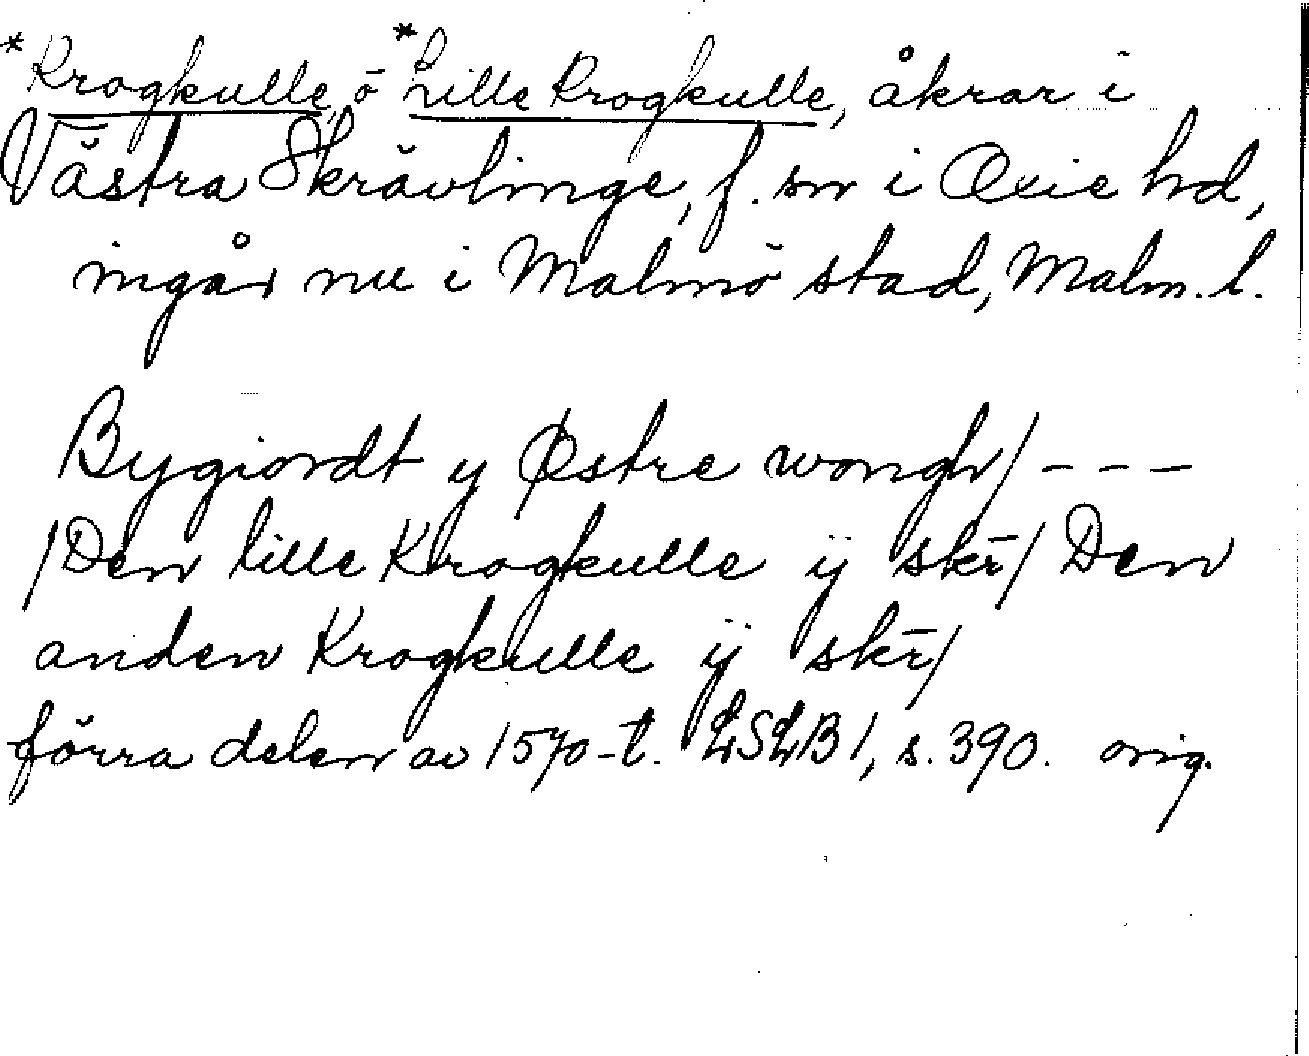 *Krogkulle, o *Lille Krogkulle, åkrar i
Västra Skrävlinge, f. sn i Oxie hd,
ingår nu i Malmö stad, Malm. l.
Bygiordt y Østre wongh/ - - -
/Den lille Krogkulle ij skr̄/ Den
anden Krogkulle ij skr̄/
förra delen av 1570-t. LSLB 1, s. 390. orig.